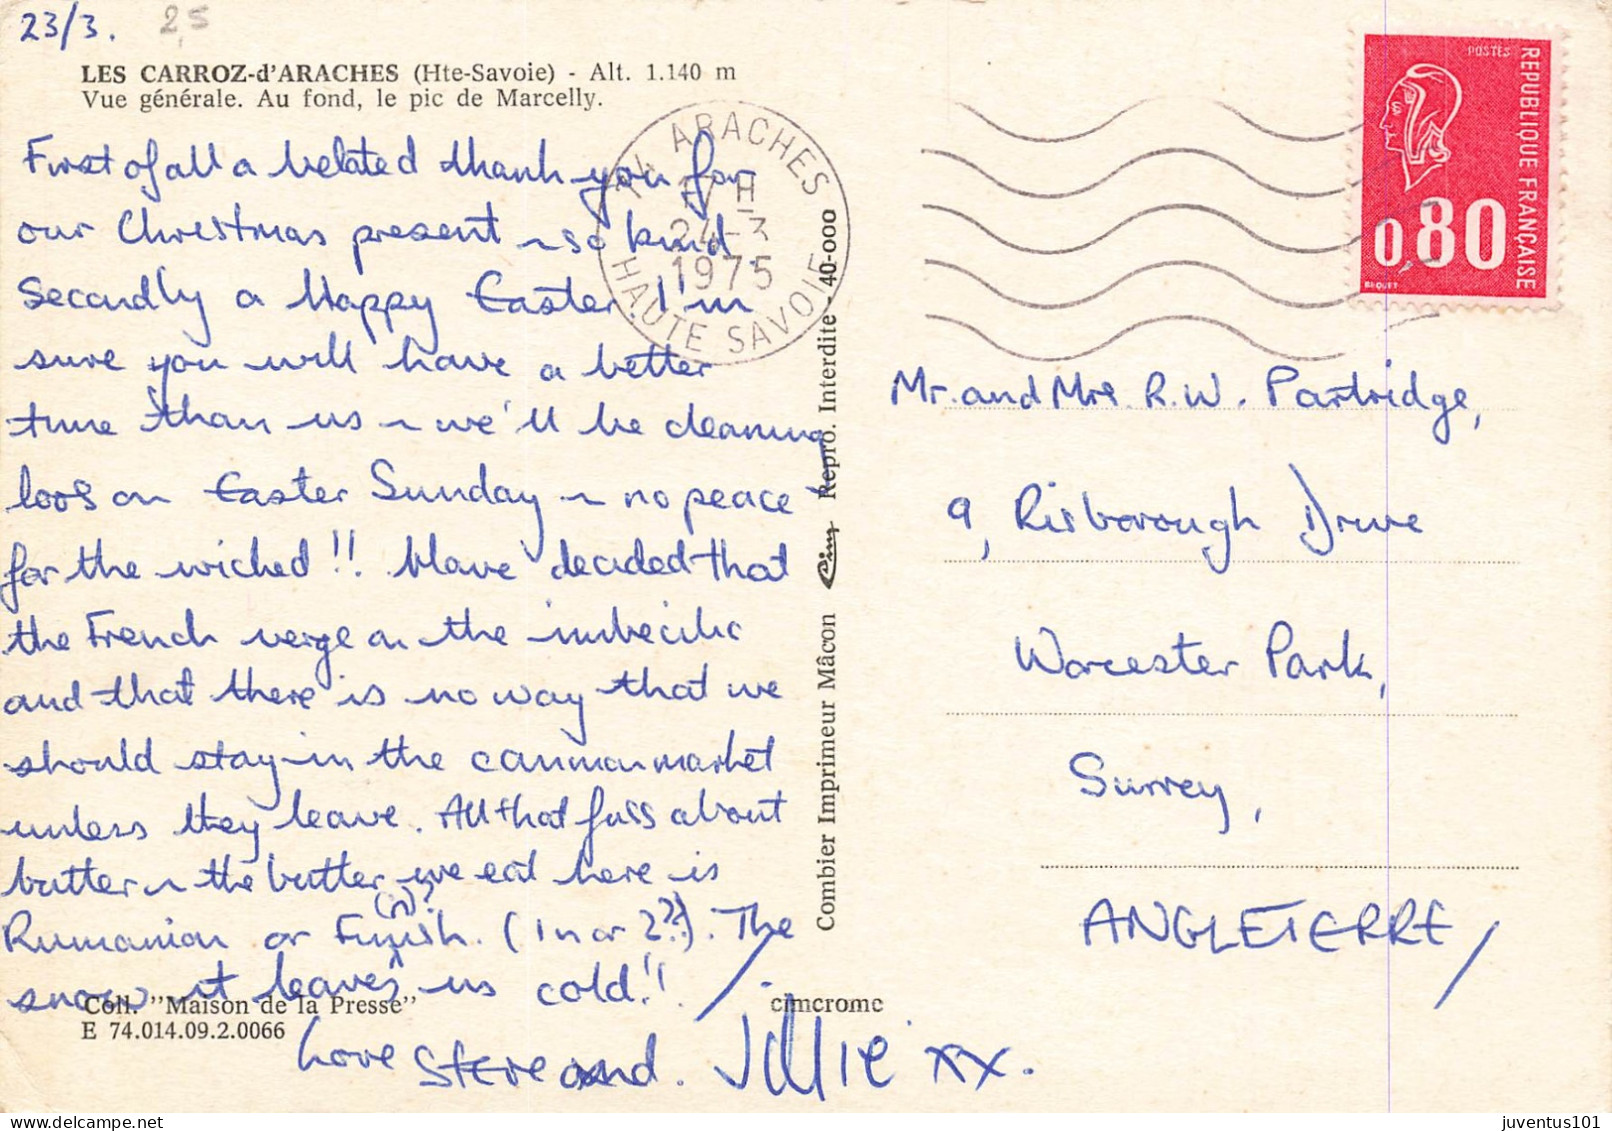 23/3.
2,5
LES CARROZ-d'ARACHES (Hte-Savoie) - Alt. 1.140 m
Vue générale. Au fond, le pic de Marcelly.
First of all a belated thank you for
our Christmas present ~ so kind.
Secondly a Happy Easter I'm
sure you will have a better
time than us ~ we'll be cleaning
loos on Easter Sunday ~ no peace
for the wicked!! Have decided that
the French verge on the imbecilic
and that there is no way that we
should stay in the common market
unless they leave. All that fuss about
butter ~ the butter we eat here is
(n)?
Rumanian or Finish. (1 n or 2??). The
snow it leaves us cold!!
Love Steve and. Jillie xx.
Coll. "Maison de la Presse"
E 74.014.09.2.0066
cimcrome
Combier Imprimeur Mâcon Cim Repro. Interdite - 40-000
74 ARACHES
17 H
24-3
1975
HAUTE SAVOIE
POSTES
REPUBLIQUE FRANÇAISE
0,80
BEQUET
Mr. and Mrs. R.W. Partridge,
9, Risborough Drive
Worcester Park,
Surrey,
ANGLETERRE
juventus101